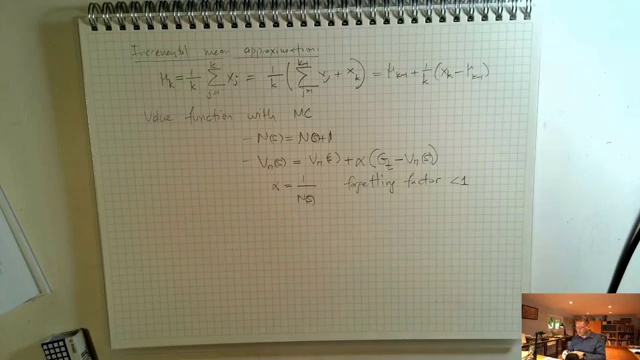 Incremental mean approximation:
μ_k = 1/k Σ_{j=1}^{k} x_j = 1/k ( Σ_{j=1}^{k-1} x_j + x_k ) = μ_{k-1} + 1/k (x_k − μ_{k-1})
Value function with MC
- N(s) = N(s)+1
- V_π(s) = V_π(s) + α (G_t − V_π(s))
α = 1/N(s) forgetting factor <1